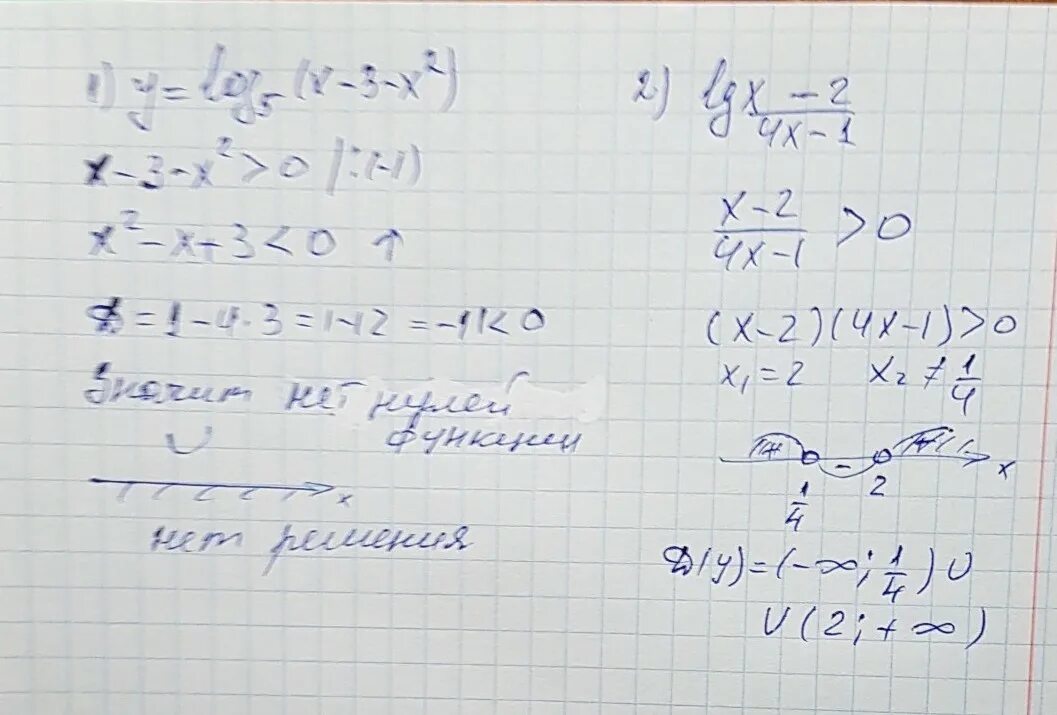 1) y = log₅ (x - 3 - x²)
x - 3 - x² > 0 | : (-1)
x² - x + 3 < 0 ↑
D = 1 - 4 · 3 = 1 - 12 = -11 < 0
Значит нет нулей
функции
x
нет решения
2) lg x - 2 / 4x - 1
x - 2 / 4x - 1 > 0
(x - 2)(4x - 1) > 0
x₁ = 2 x₂ ≠ 1/4
+ - + x
1/4 2
D(y) = (-∞; 1/4) ∪
∪ (2; +∞)